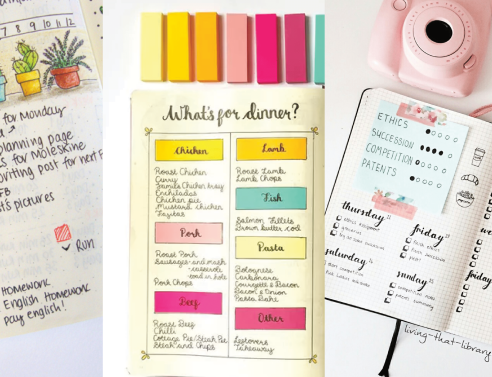 7 8 9 10 11 12
for Monday
planning page
for Moleskine
writing post for next
FB
pictures
Run
Homework
English Homework
Pay english!
What's for dinner?
Chicken
Roast Chicken
Curry
Enchiladas
Chicken pie
Mustard chicken
Fajitas
Pork
Roast Pork
Sausages and mash
casserole
toad in hole
Pork Chops
Beef
Roast Beef
Chilli
Cottage Pie/Steak Pie
Steak and Chips
Lamb
Roast Lamb
Lamb Chops
Fish
Salmon Fillets
Brown butter cod
Pasta
Bolognese
Carbonara
Courgette & Bacon
Bacon & Onion
Pasta Bake
Other
Leftovers
Takeaway
ETHICS
SUCCESSION
COMPETITION
PATENTS
thursday
friday
saturday
sunday
friday
living-that-library